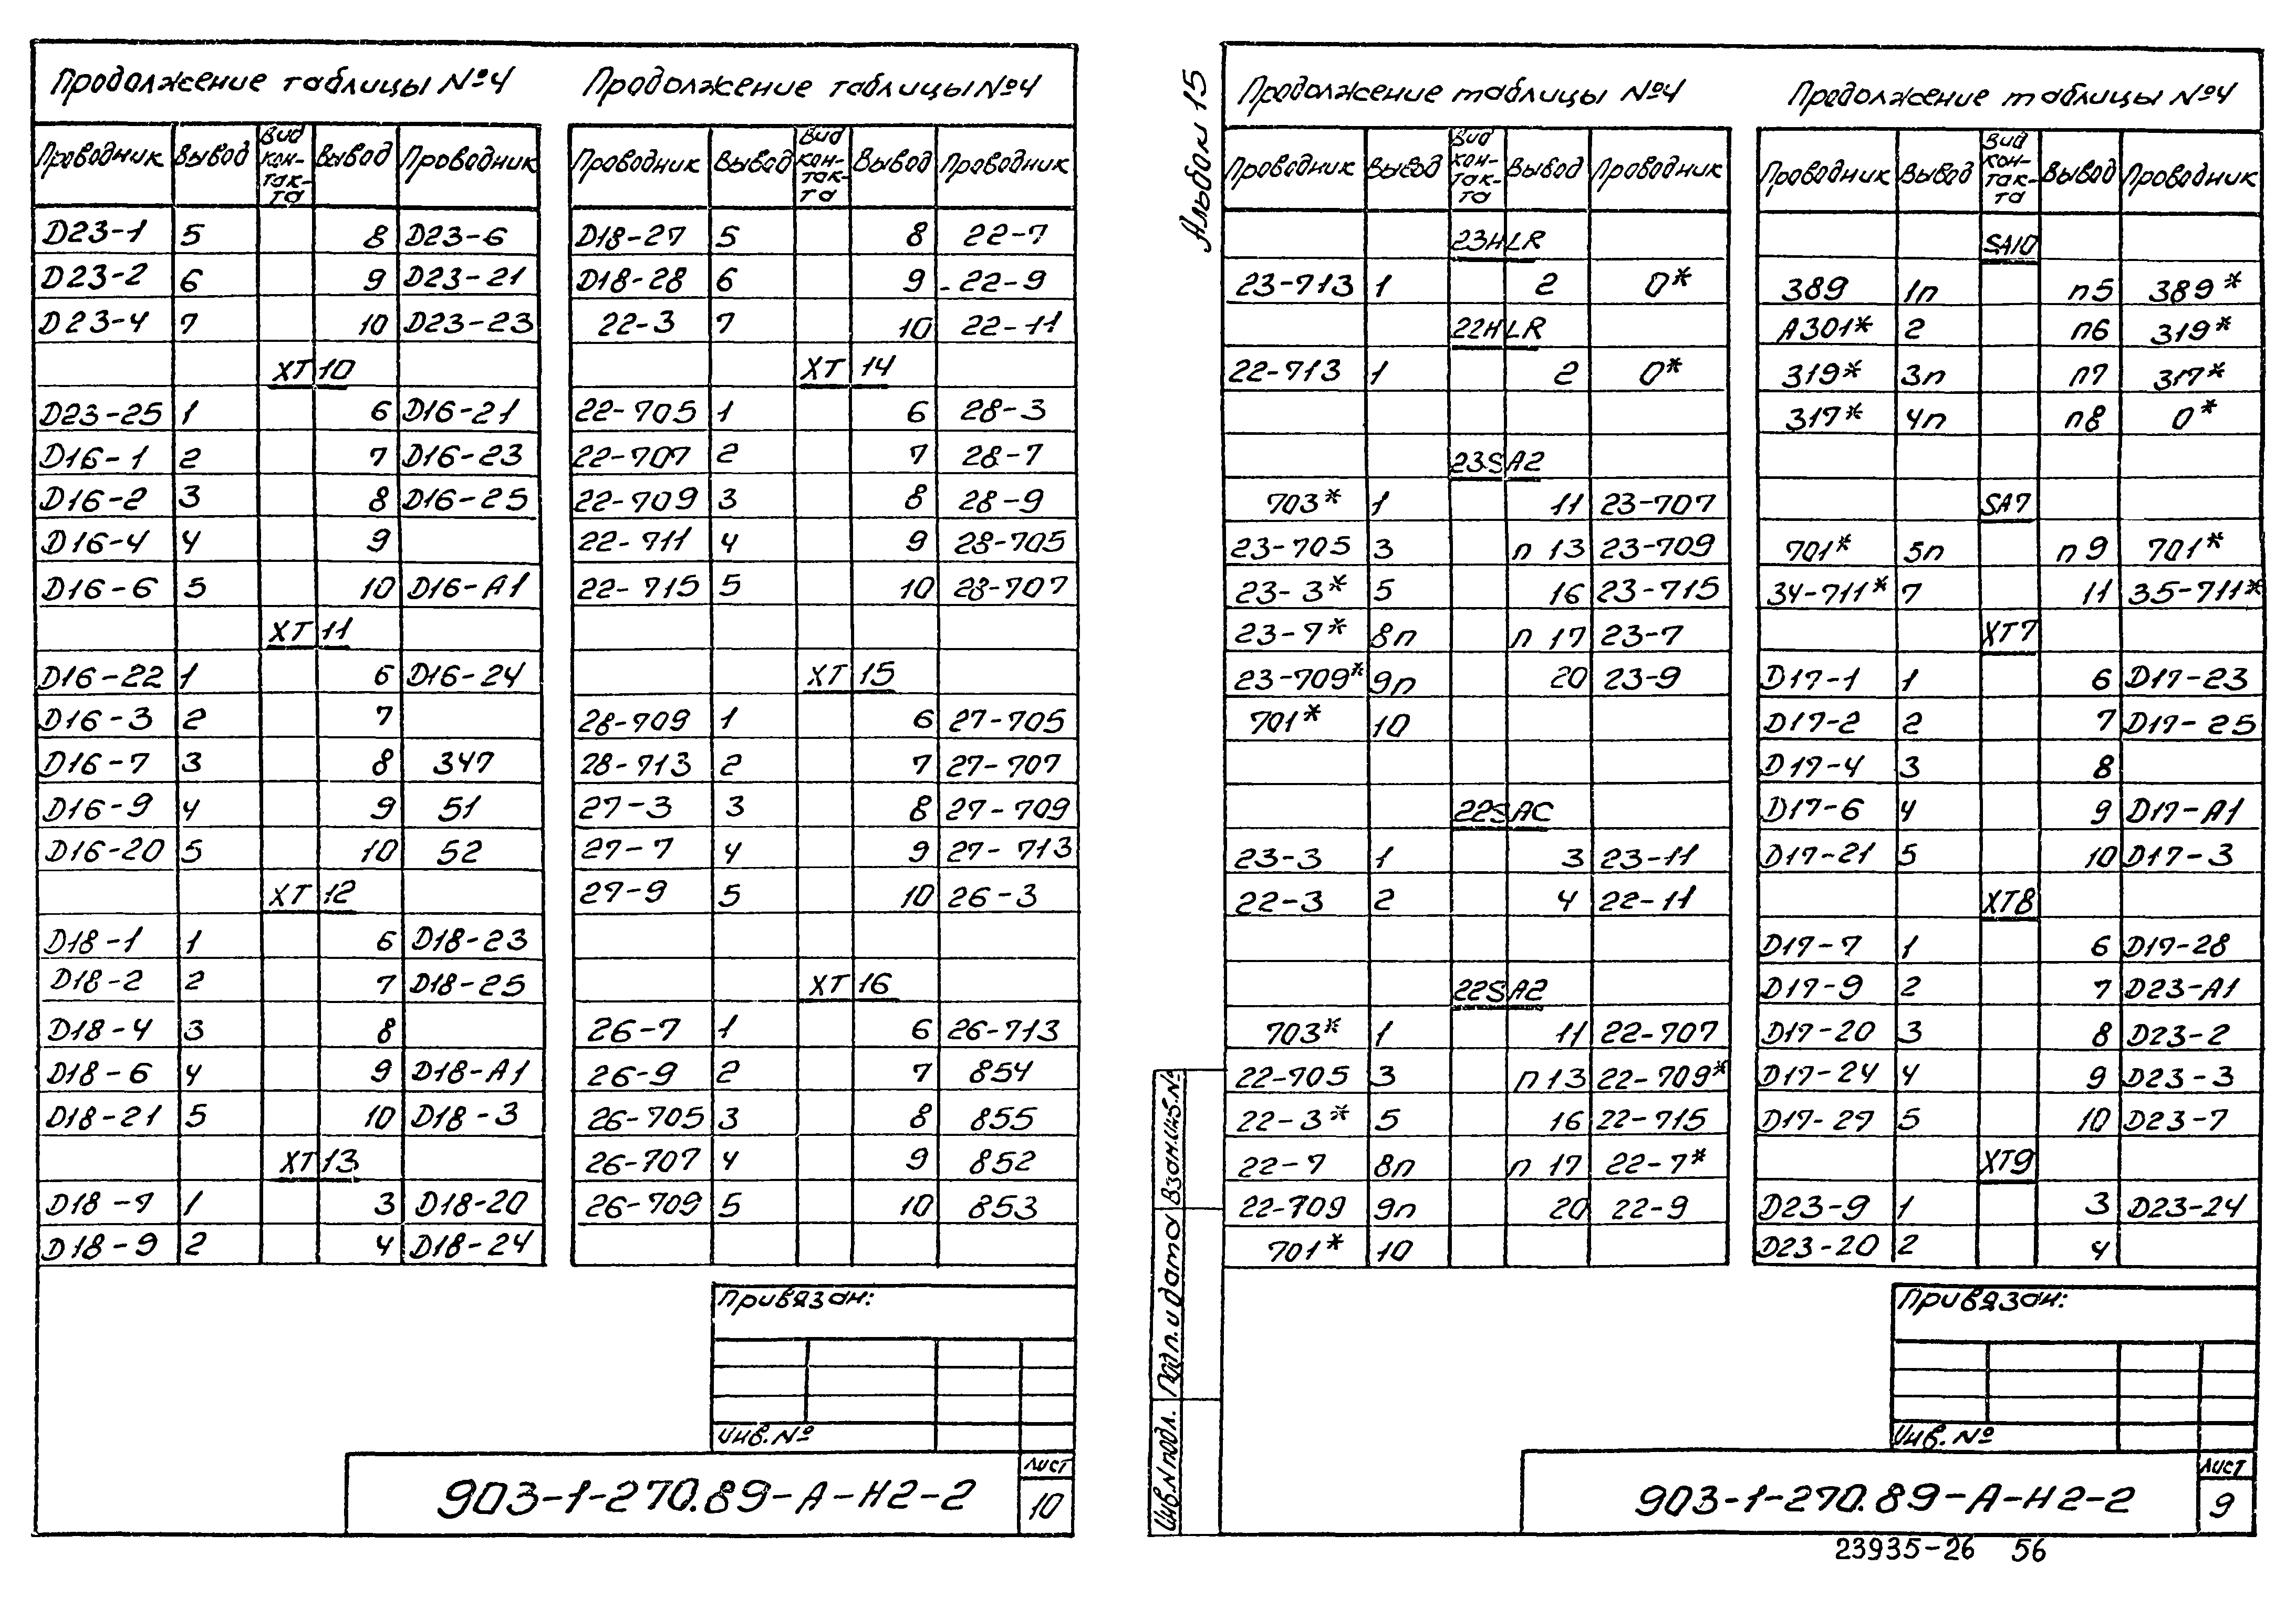 Продолжение таблицы №4
Проводник Вывод Вид кон-так-та Вывод Проводник
D23-1 5 8 D23-6
D23-2 6 9 D23-21
D23-4 7 10 D23-23
XT 10
D23-25 1 6 D16-21
D16-1 2 7 D16-23
D16-2 3 8 D16-25
D16-4 4 9
D16-6 5 10 D16-A1
XT 11
D16-22 1 6 D16-24
D16-3 2 7
D16-7 3 8 347
D16-9 4 9 51
D16-20 5 10 52
XT 12
D18-1 1 6 D18-23
D18-2 2 7 D18-25
D18-4 3 8
D18-6 4 9 D18-A1
D18-21 5 10 D18-3
XT 13
D18-7 1 3 D18-20
D18-9 2 4 D18-24
Продолжение таблицы №4
Проводник Вывод Вид кон-так-та Вывод Проводник
D18-27 5 8 22-7
D18-28 6 9 22-9
22-3 7 10 22-11
XT 14
22-705 1 6 28-3
22-707 2 7 28-7
22-709 3 8 28-9
22-711 4 9 28-705
22-715 5 10 28-707
XT 15
28-709 1 6 27-705
28-713 2 7 27-707
27-3 3 8 27-709
27-7 4 9 27-713
27-9 5 10 26-3
XT 16
26-7 1 6 26-713
26-9 2 7 854
26-705 3 8 855
26-707 4 9 852
26-709 5 10 853
Привязан:
Инв.№
903-1-270.89-А-Н2-2
Лист
10
Альбом 15
Продолжение таблицы №4
Проводник Вывод Вид кон-так-та Вывод Проводник
23HLR
23-713 1 2 0*
22HLR
22-713 1 2 0*
23SA2
703* 1 11 23-707
23-705 3 п 13 23-709
23-3* 5 16 23-715
23-7* 8п п 17 23-7
23-709* 9п 20 23-9
701* 10
22SAC
23-3 1 3 23-11
22-3 2 4 22-11
22SA2
703* 1 11 22-707
22-705 3 п 13 22-709*
22-3* 5 16 22-715
22-7 8п п 17 22-7*
22-709 9п 20 22-9
701* 10
Продолжение таблицы №4
Проводник Вывод Вид кон-так-та Вывод Проводник
SA10
389 1п п5 389*
A301* 2 п6 319*
319* 3п п7 317*
317* 4п п8 0*
SA7
701* 5п п 9 701*
34-711* 7 11 35-711*
XT7
D17-1 1 6 D17-23
D17-2 2 7 D17-25
D17-4 3 8
D17-6 4 9 D17-A1
D17-21 5 10 D17-3
XT8
D17-7 1 6 D17-28
D17-9 2 7 D23-A1
D17-20 3 8 D23-2
D17-24 4 9 D23-3
D17-27 5 10 D23-7
XT9
D23-9 1 3 D23-24
D23-20 2 4
Взам.инв.№
Подп. и дата
Инв.№подл.
Привязан:
Инв.№
903-1-270.89-А-Н2-2
Лист
9
23935-26 56